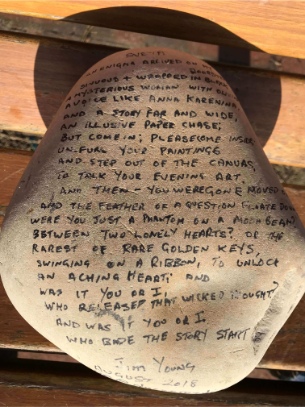 SVETA
ARRIVED ON
BEHOVE & WRAPPED IN BLACK
MYSTERIOUS WOMAN WITH
A VOICE LIKE ANNA KARENINA
AND A STORY FAR AND WIDE,
AN ILLUSIVE PAPER CHASE;
BUT COME IN; PLEASE COME INSIDE
UNFURL YOUR PAINTINGS
AND STEP OUT OF THE CANVAS,
TO TALK YOUR EVENING ART,
AND THEN - YOU WERE GONE MOVED ON
AND THE FEATHER OF A QUESTION
WERE YOU JUST A PHANTOM ON A MOON BEAM?
BETWEEN TWO LONELY HEARTS? OR THE
RAREST OF RARE GOLDEN KEYS,
SWINGING ON A RIBBON, TO UNLOCK
AN ACHING HEART; AND
WAS IT YOU OR I,
WHO RELEASED THAT WICKED THOUGHT?
AND WAS IT YOU OR I
WHO BADE THE STORY START
JIM YOUNG
AUGUST 2016